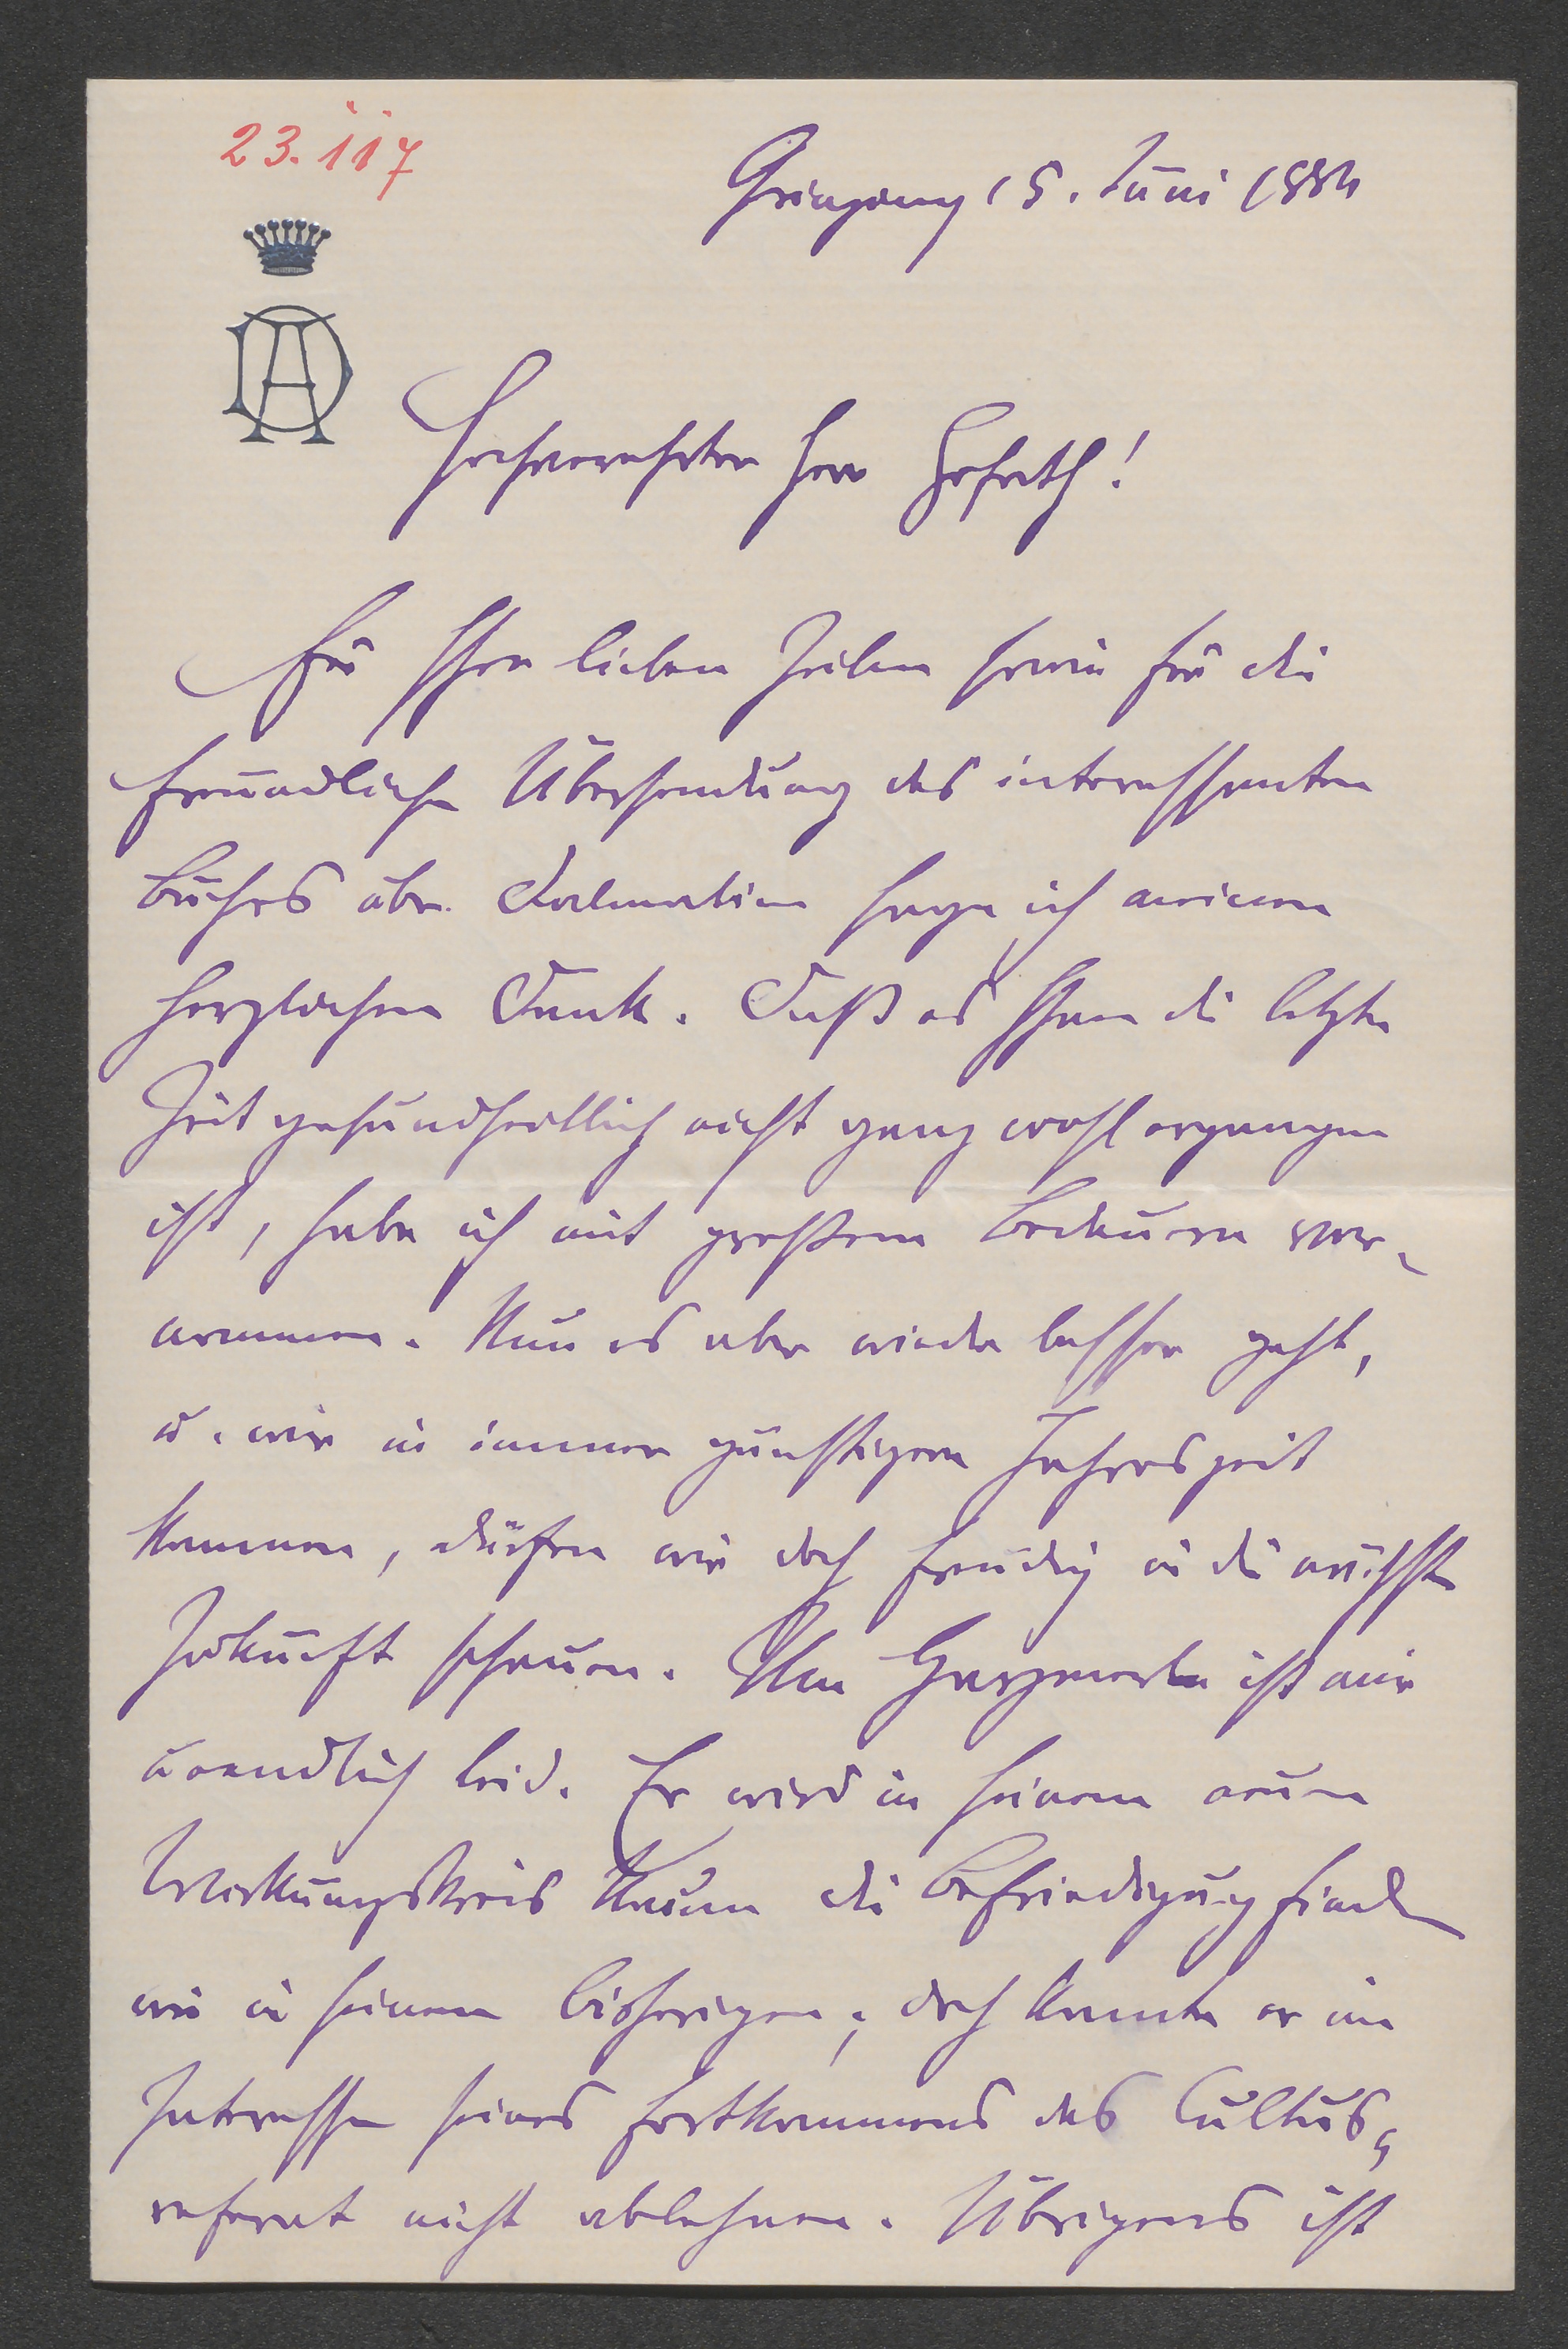 23.117
Grinzing 15. Juni 1884
DA
Hochverehrter Herr Hofrath!
Für Ihre lieben Zeilen sowie für die
freundliche Übersendung des interessanten
Buches über Dalmatien sage ich meinen
herzlichsten Dank. Daß es Ihnen die letzte
Zeit gesundheitlich nicht ganz wohl ergangen
ist, habe ich mit großem Bedauern ver-
nommen. Nun es aber wieder besser geht,
u. wir in immer günstigere Jahreszeit
kommen, dürfen wir doch freudig in die nächste
Zukunft schauen. Um ist mir
unendlich leid. Er wird in seinem neuen
Wirkungskreis kaum die Befriedigung finden
wie in seinem bisherigen; doch konnte er im
Interesse seines Fortkommens das Cultus-
referat nicht ablehnen. Übrigens ist